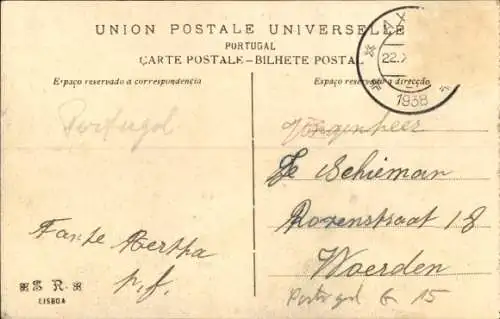 UNION POSTALE UNIVERSELLE
PORTUGAL
CARTE POSTALE–BILHETE POSTAL
Espaço reservado a correspondencia
Espaço reservado á direcção
22.X
1938
Portugal
Jongenheer
De Schieman
Rozenstraat 18
Woerden
Tante Bertha
p.f.
S. R.
LISBOA
Portugal G 15